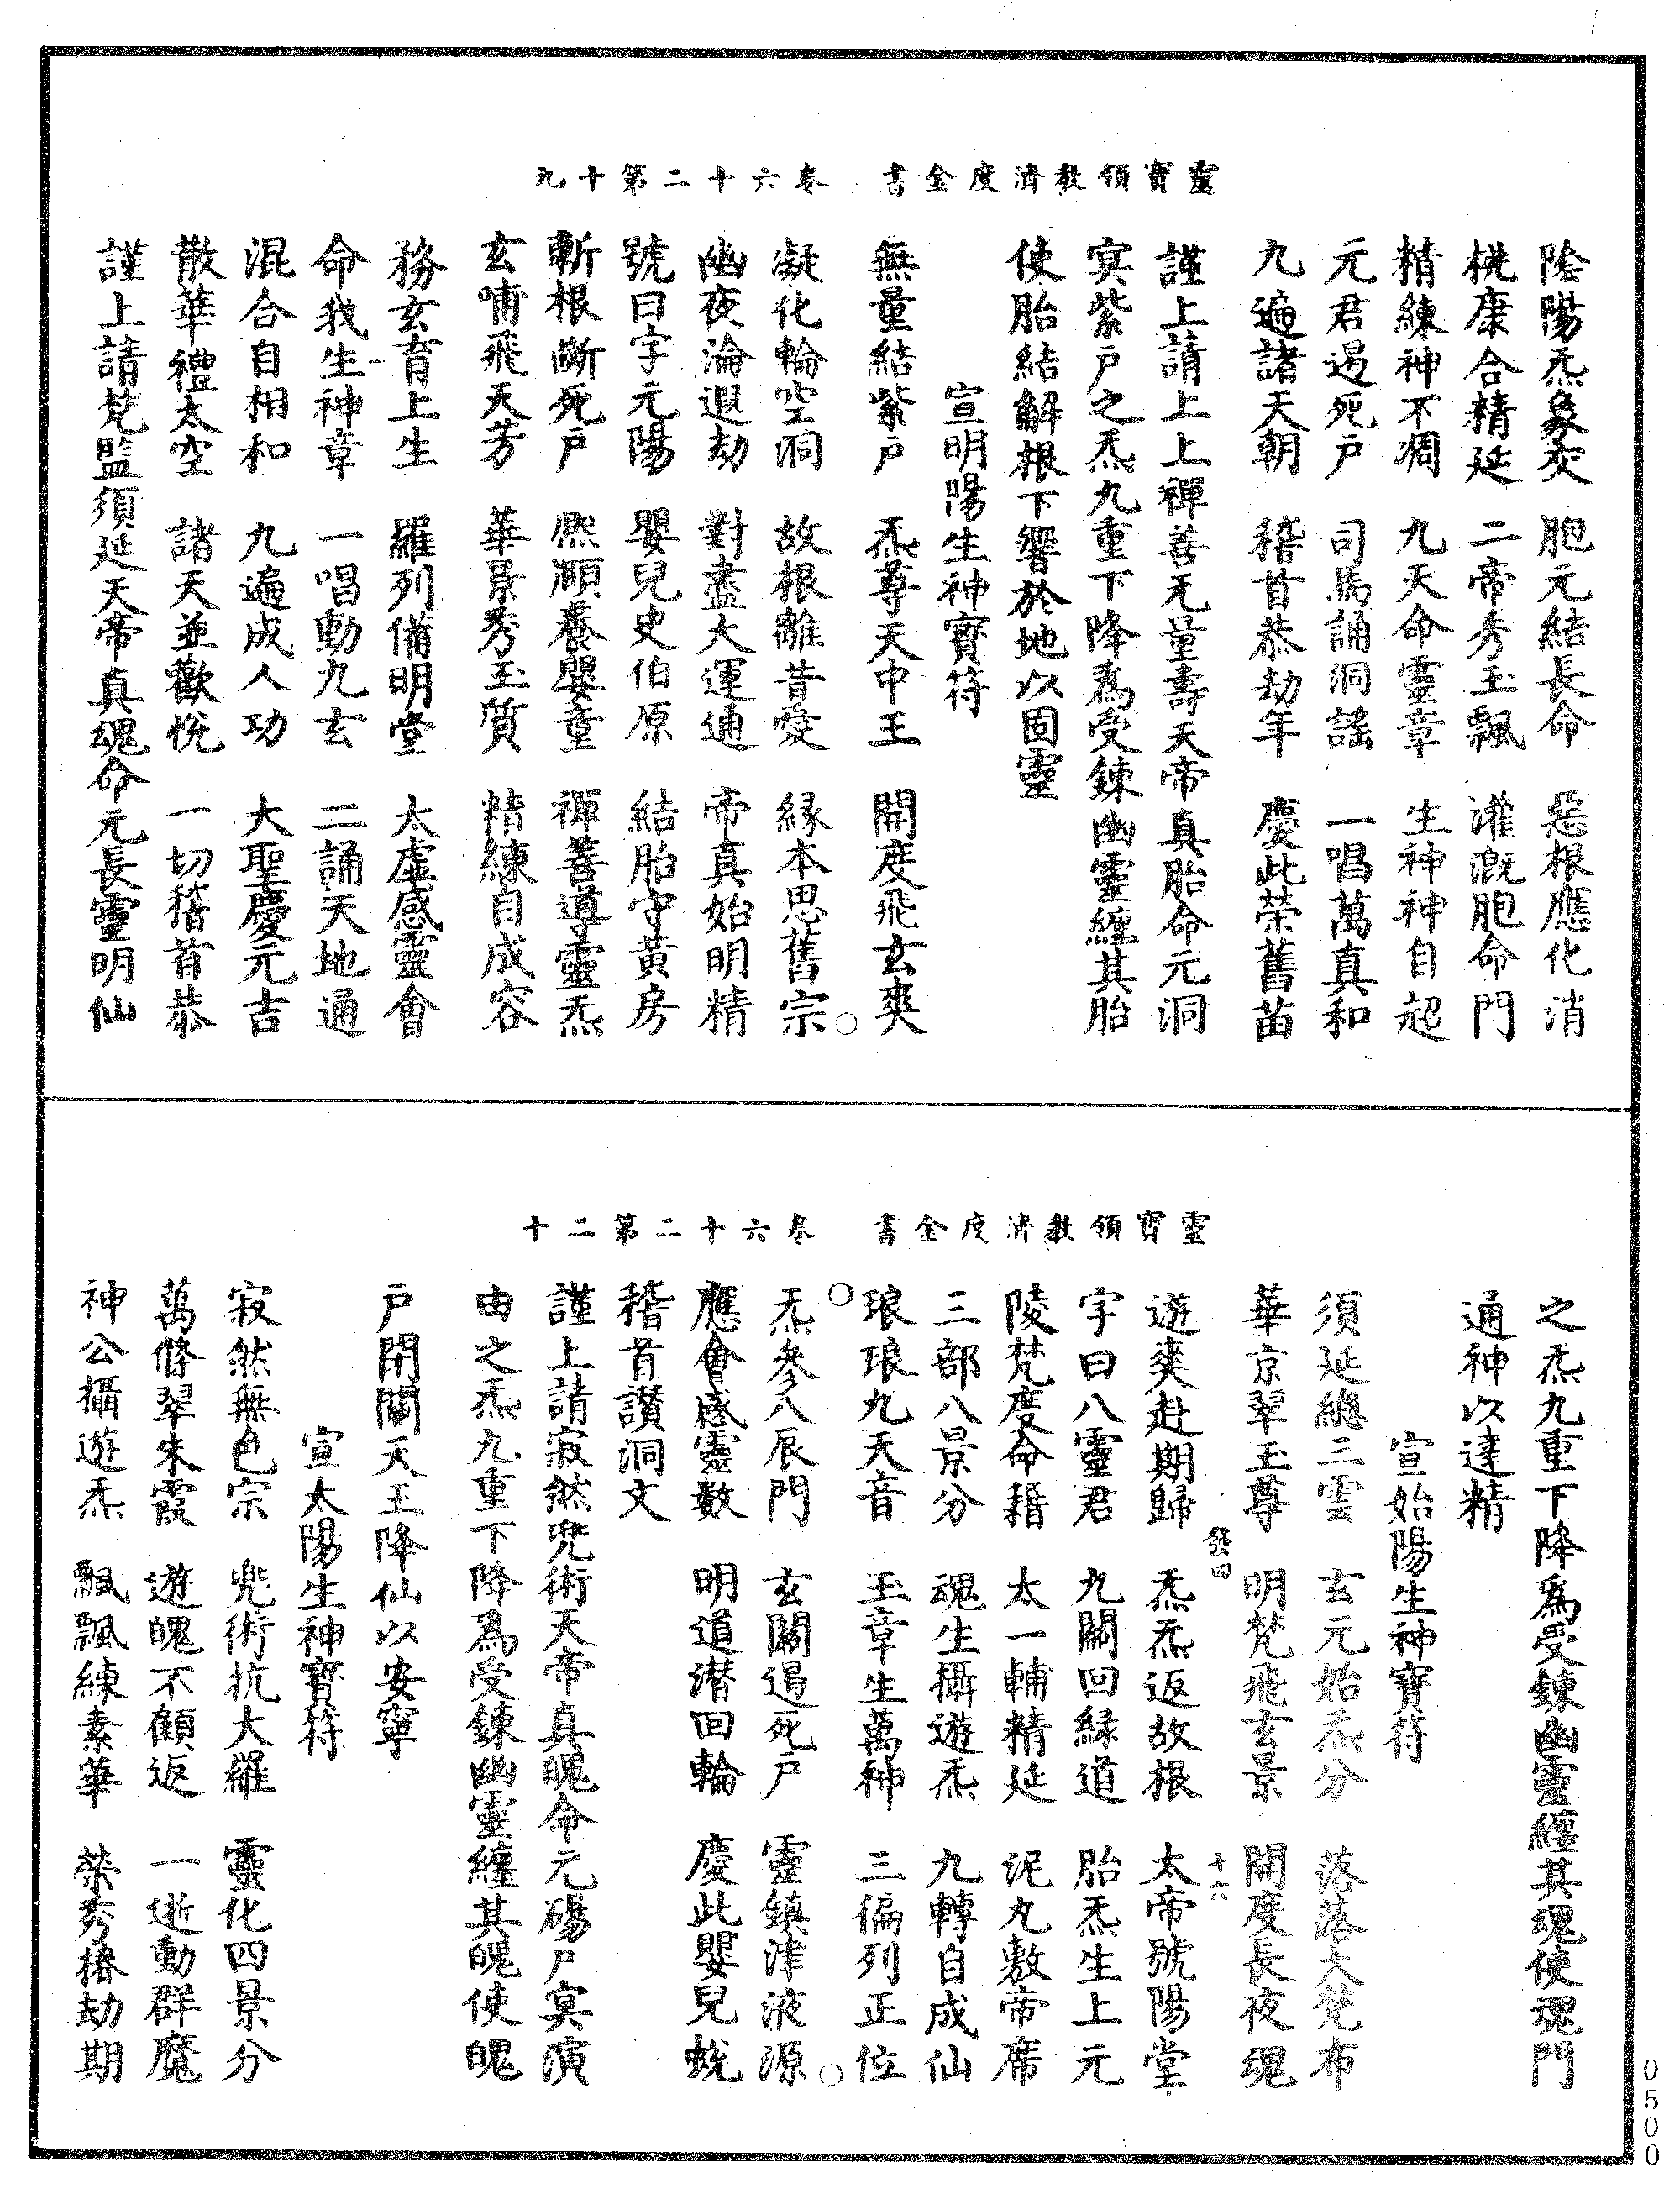 靈寶領教濟度金書　卷六十二第十九
陰陽炁象交　胞元結長命　惡根應化消
桃康合精延　二帝秀玉飄　灌溉胞命門
精練神不凋　九天命靈章　生神神自超
元君遏死戶　司馬誦洞謠　一唱萬真和
九遍諸天朝　稽首恭劫年　慶此榮舊苗
謹上請上上禪善无量壽天帝真胎命元洞
冥紫戶之炁九重下降為受鍊幽靈纏其胎
使胎結解根下響於地以固靈
宣明陽生神寶符
無量結紫戶　炁尊天中王　開度飛玄爽
凝化輪空洞　故根離昔愛　緣本思舊宗
幽夜淪遐劫　對盡大運通　帝真始明精
號曰字元陽　嬰兒史伯原　結胎守黃房
斬根斷死戶　熙頤養嬰童　禪善導靈炁
玄哺飛天芳　華景秀玉質　精練自成容
務玄育上生　羅列備明堂　太虛感靈會
命我生神章　一唱動九玄　二誦天地通
混合自相和　九遍成人功　大聖慶元吉
散華禮太空　諸天並歡悅　一切稽首恭
謹上請梵監須延天帝真魂命元長靈明仙
靈寶領教濟度金書　卷六十二第二十
之炁九重下降為受鍊幽靈纏其魂使魂門
通神以達精
宣始陽生神寶符
須延總三雲　玄元始炁分　落落大梵布
華京翠玉尊　明梵飛玄景　開度長夜魂
發四　十六
遊爽赴期歸　炁炁返故根　太帝號陽堂
字曰八靈君　九關回緣道　胎炁生上元
陵梵度命籍　太一輔精延　泥丸敷帝席
三部八景分　魂生攝遊炁　九轉自成仙
琅琅九天音　玉章生萬神　三徧列正位
炁參八辰門　玄關遏死戶　靈鎮津液源
應會感靈數　明道潛回輪　慶此嬰兒蛻
稽首讚洞文
謹上請寂然兜術天帝真魄命元碭尸冥演
由之炁九重下降為受鍊幽靈纏其魄使魄
戶閉關天王降仙以安寧
宣太陽生神寶符
寂然無色宗　兜術抗大羅　靈化四景分
萬條翠朱霞　遊魄不顧返　一逝動群魔
神公攝遊炁　飄飄練素華　榮秀椿劫期
0500